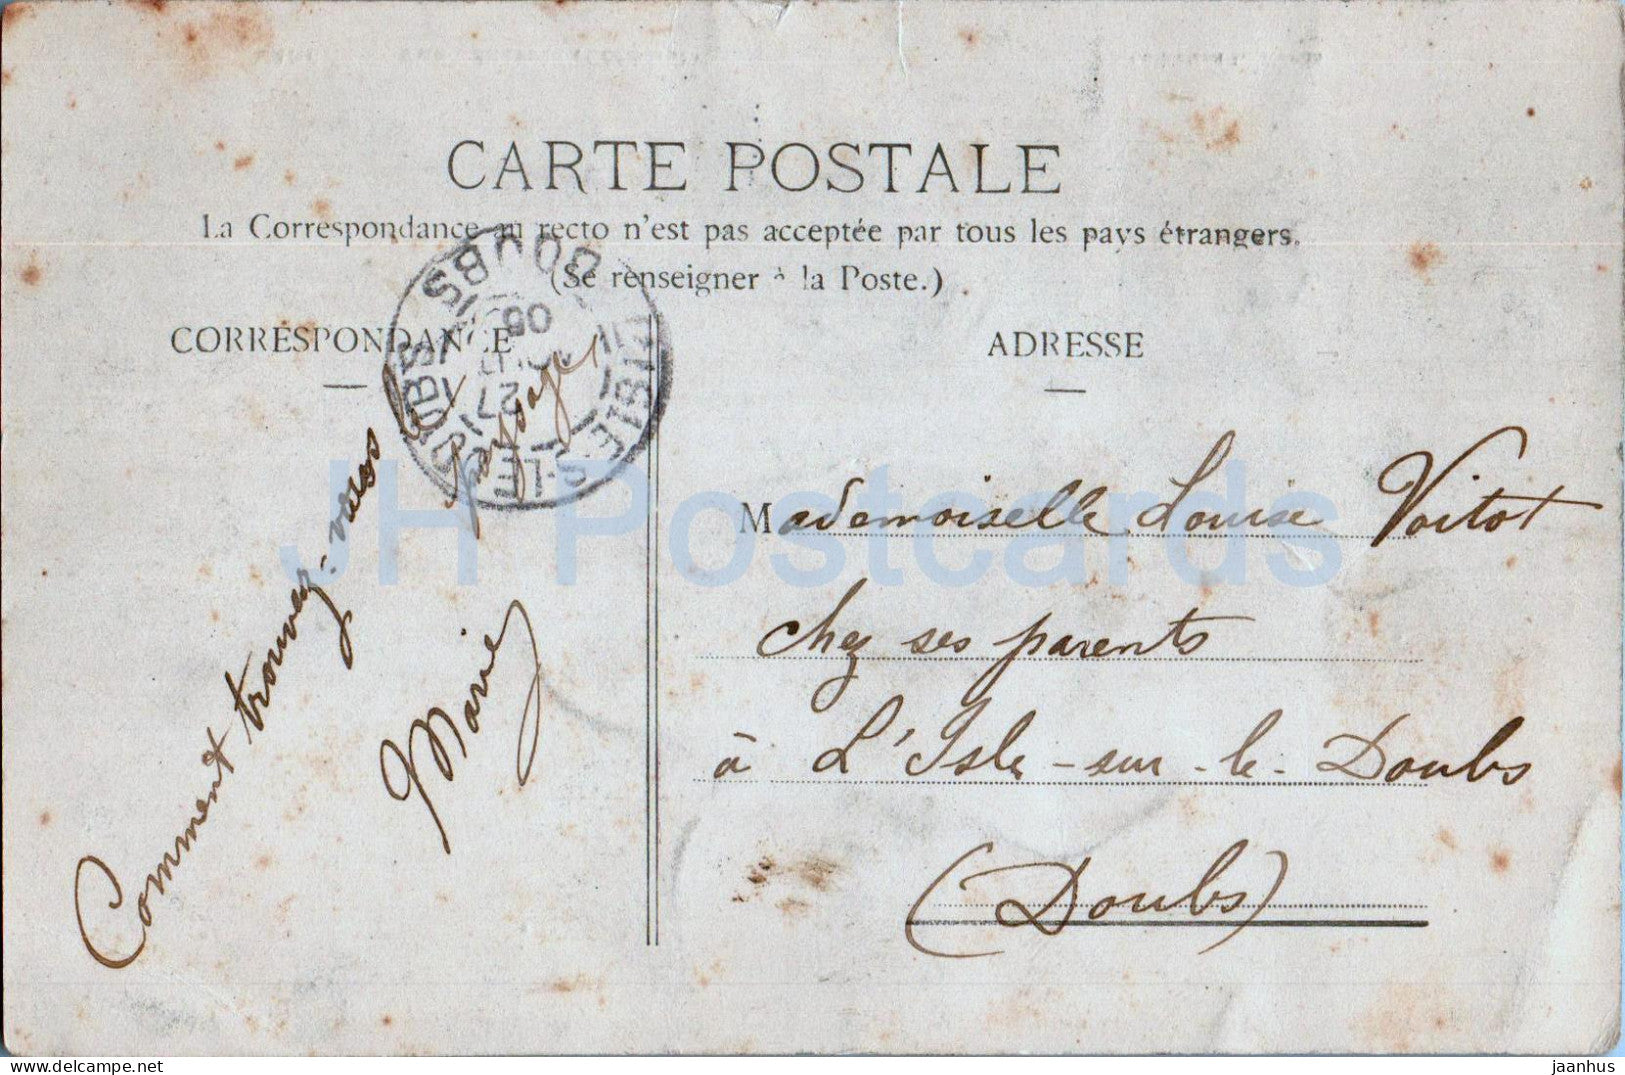 CARTE POSTALE
La Correspondance au recto n'est pas acceptée par tous les pays étrangers.
(Se renseigner à la Poste.)
CORRESPONDANCE
ADRESSE
Comment trouvez-vous ce
paysage
Marie
Mademoiselle Louise Voitot
chez ses parents
à L'Isle-sur-le-Doubs
(Doubs)
L'ISLE-S-LE-DOUBS
DOUBS
27
05
JH Postcards
delcampe.net
jaanhus